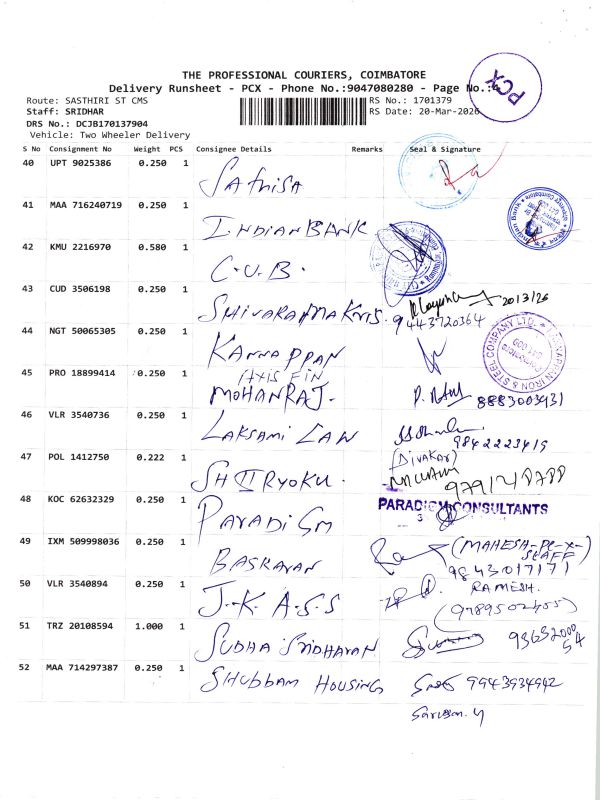 PCX
THE PROFESSIONAL COURIERS, COIMBATORE
Delivery Runsheet - PCX - Phone No.:9047080280 - Page No.:
Route: SASTHIRI ST CMS
RS No.: 1701379
Staff: SRIDHAR
RS Date: 20-Mar-2026
DRS No.: DCJB170137904
Vehicle: Two Wheeler Delivery
S No Consignment No Weight PCS Consignee Details Remarks Seal & Signature
40 UPT 9025386 0.250 1
SAthiSA
41 MAA 716240719 0.250 1
INDIAN BANK
Indian Bank
42 KMU 2216970 0.580 1
C.U.B.
43 CUD 3506198 0.250 1
20/3/26
9443720364
44 NGT 50065305 0.250 1
KANNAPPAN
IRON & STEEL COMPANY LTD.
45 PRO 18899414 0.250 1
AXIS FIN
MOHANRAJ.
8883003431
46 VLR 3540736 0.250 1
LAKSAMI LAW
9842223419
(DIVAKAR)
47 POL 1412750 0.222 1
SHIIRYOKU.
48 KOC 62632329 0.250 1
PARADIGM CONSULTANTS
PARADIGM
49 IXM 509998036 0.250 1
BASKARAN
(MAHESH-
STAFF)
9843017171
50 VLR 3540894 0.250 1
J.K.A.S.S
RAMESH.
51 TRZ 20108594 1.000 1
SUDHA SRIDHARAN
52 MAA 714297387 0.250 1
SHUBBAM HOUSING
9943934942